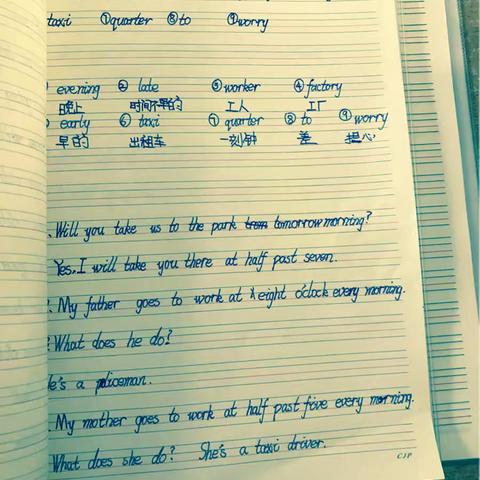 taxi ①quarter ⑧to ⑨worry
evening ② late ③worker ④factory
晚上 时间不早的 工人 工厂
early ⑥ taxi ⑦ quarter ⑧ to ⑨ worry
早的 出租车 一刻钟 差 担心
.Will you take us to the park tomorrow morning?
Yes, I will take you there at half past seven.
. My father goes to work at eight o'clock every morning.
What does he do?
He's a policeman.
. My mother goes to work at half past five every morning.
What does she do? She's a taxi driver.
CJP